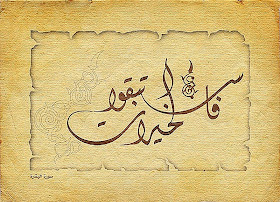 فاستبقوا الخيرات
سورة البقرة